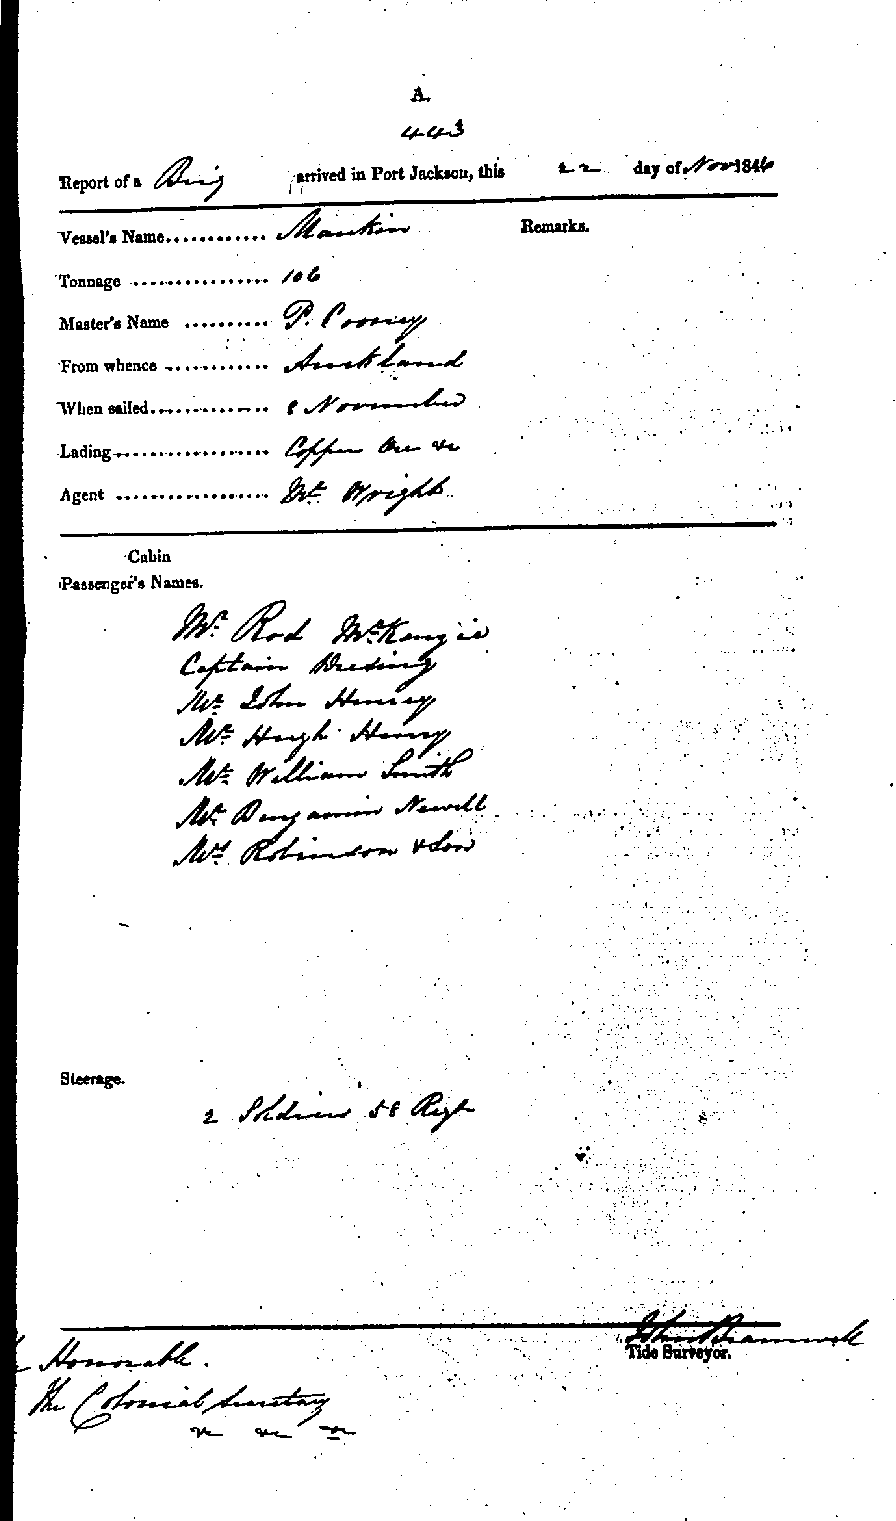 A.
443
Report of a Brig arrived in Port Jackson, this 22 day of Nov 1846
Vessel's Name............ Maukin Remarks.
Tonnage ................ 106
Master's Name .......... P. Cooney
From whence ............ Auckland
When sailed.............. 8 November
Lading.................. Copper Ore &c
Agent .................. Mr Wright
Cabin
Passenger's Names.
Mr. Rod McKenzie
Captain
Mr. John Henry
Mr. Hugh Henry
Mr. William Smith
Mr. Benjamin Newell
Mrs Robinson & Son
Steerage.
2 Soldiers 58 Regt
John Bramwell
Tide Surveyor.
Honorable.
The Colonial Secretary
&c &c &c